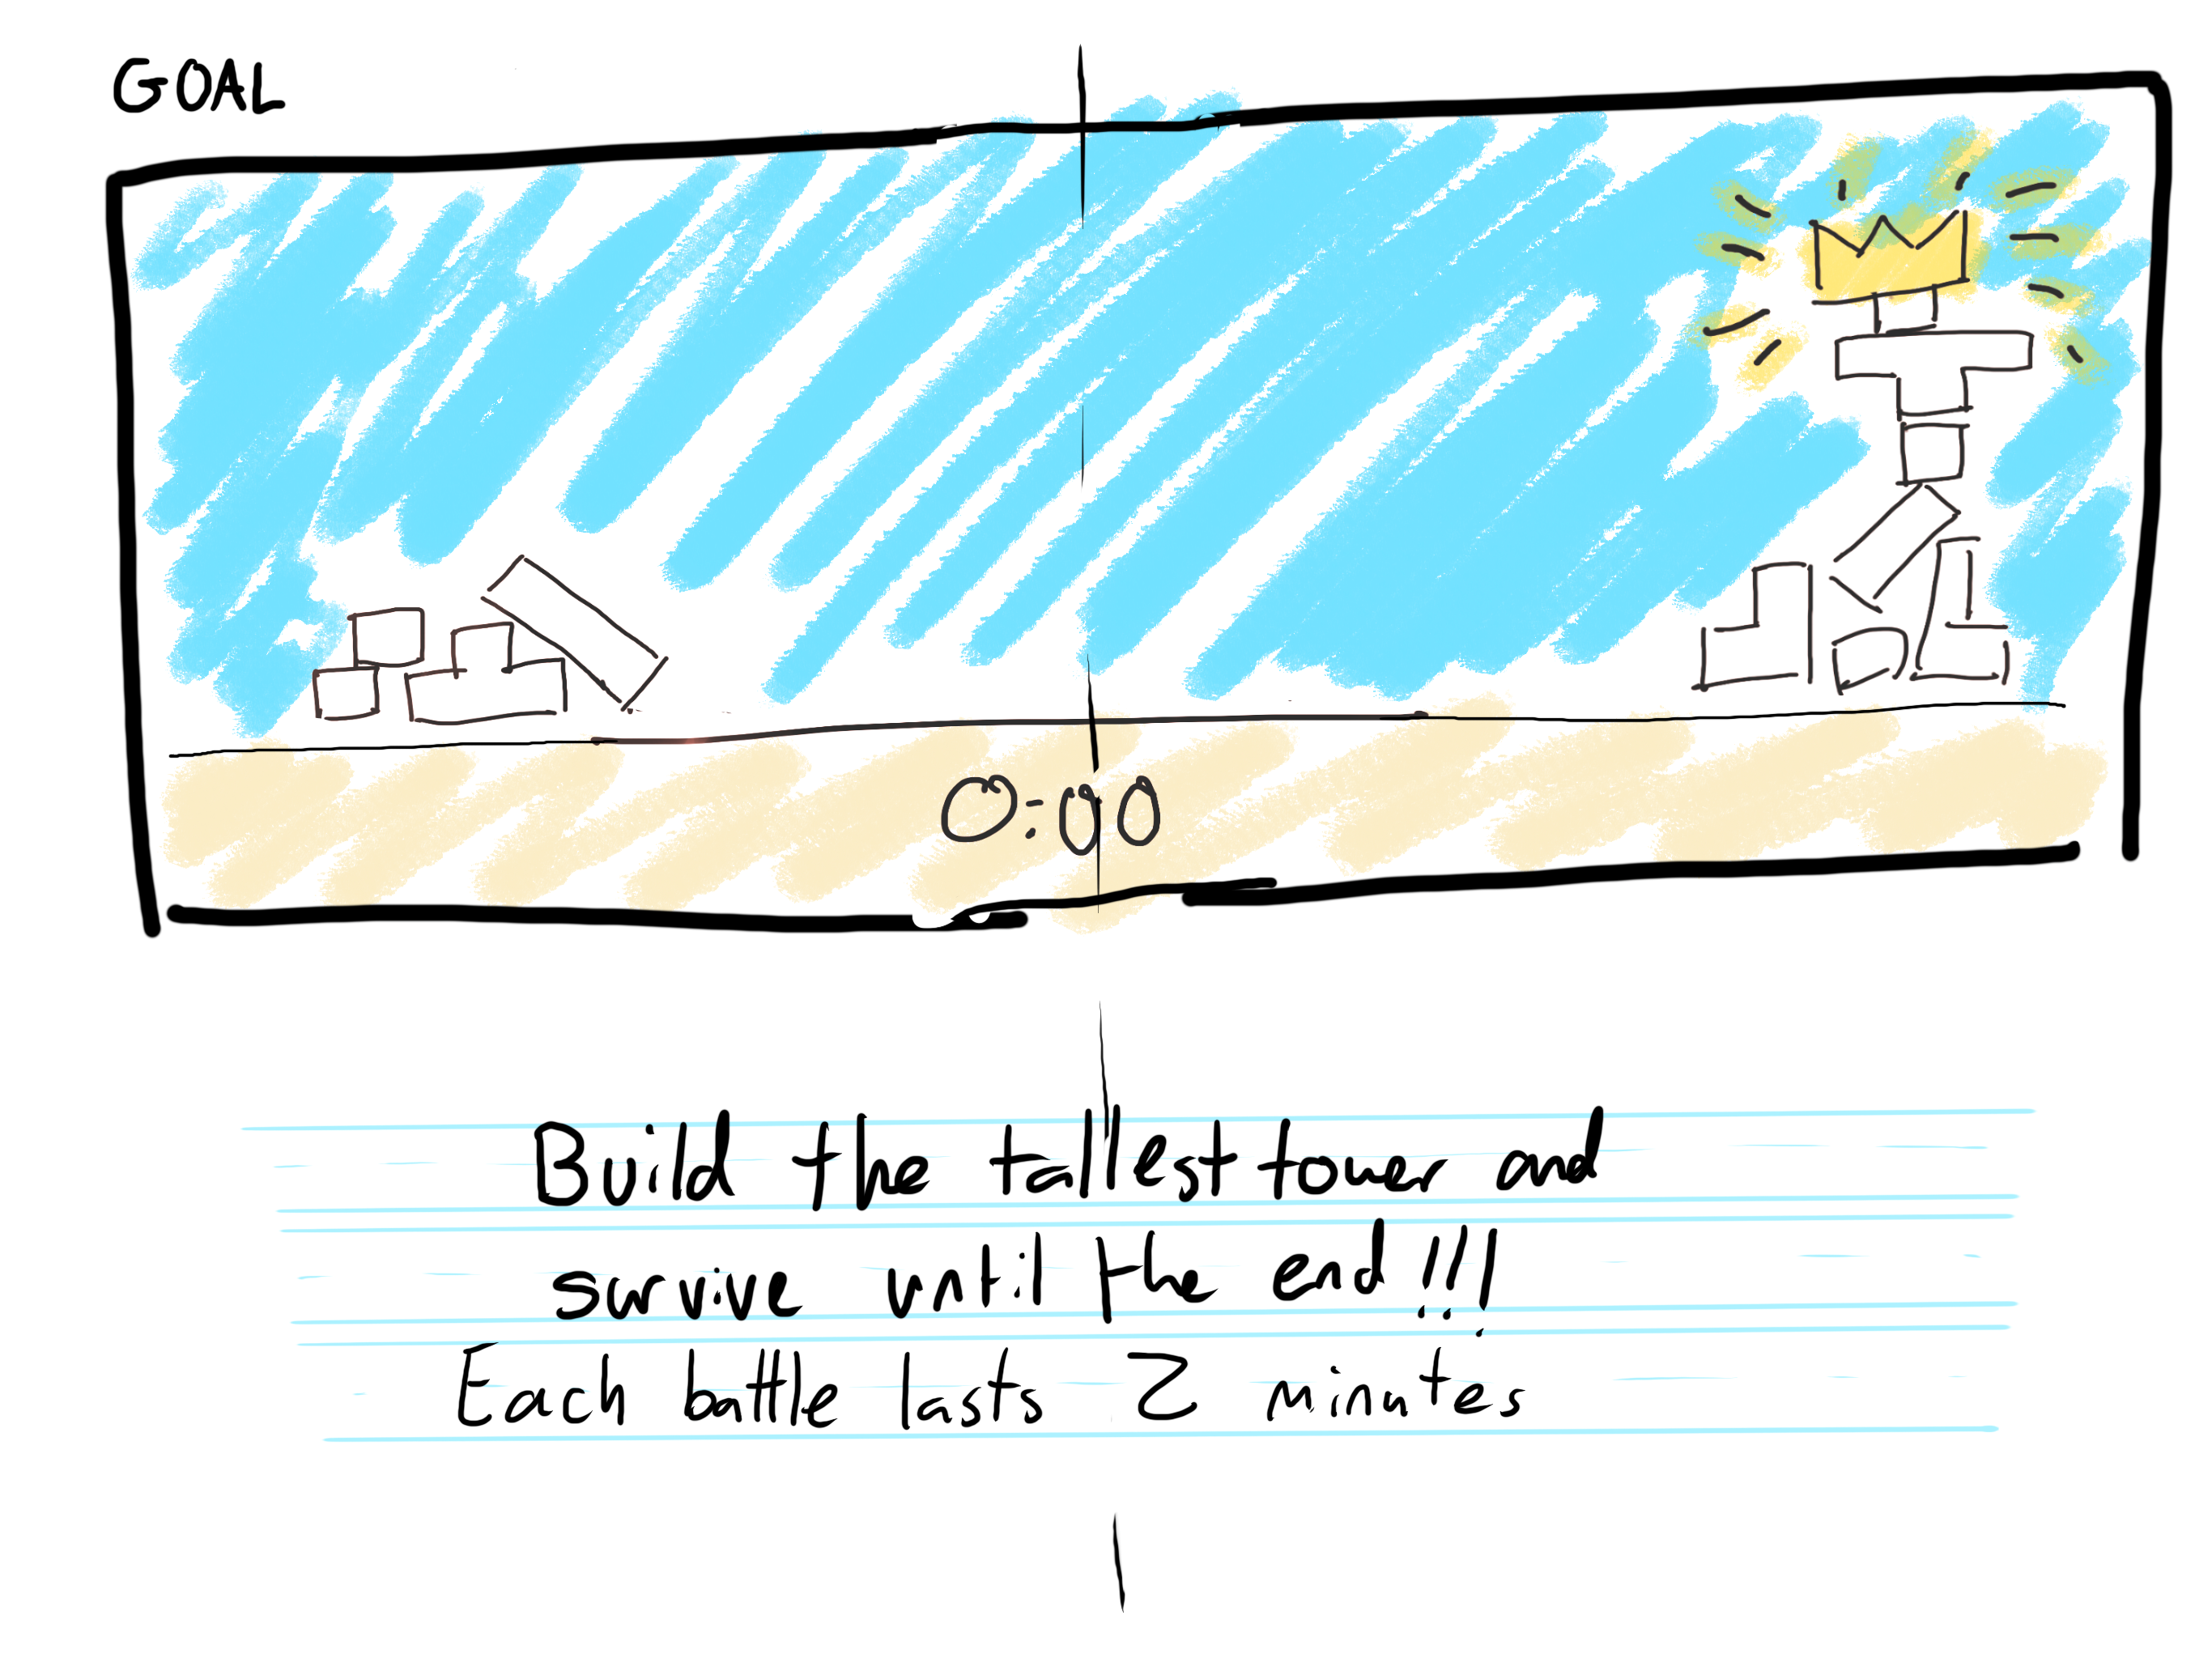 GOAL
0:00
Build the tallest tower and
survive until the end!!!
Each battle lasts 2 minutes